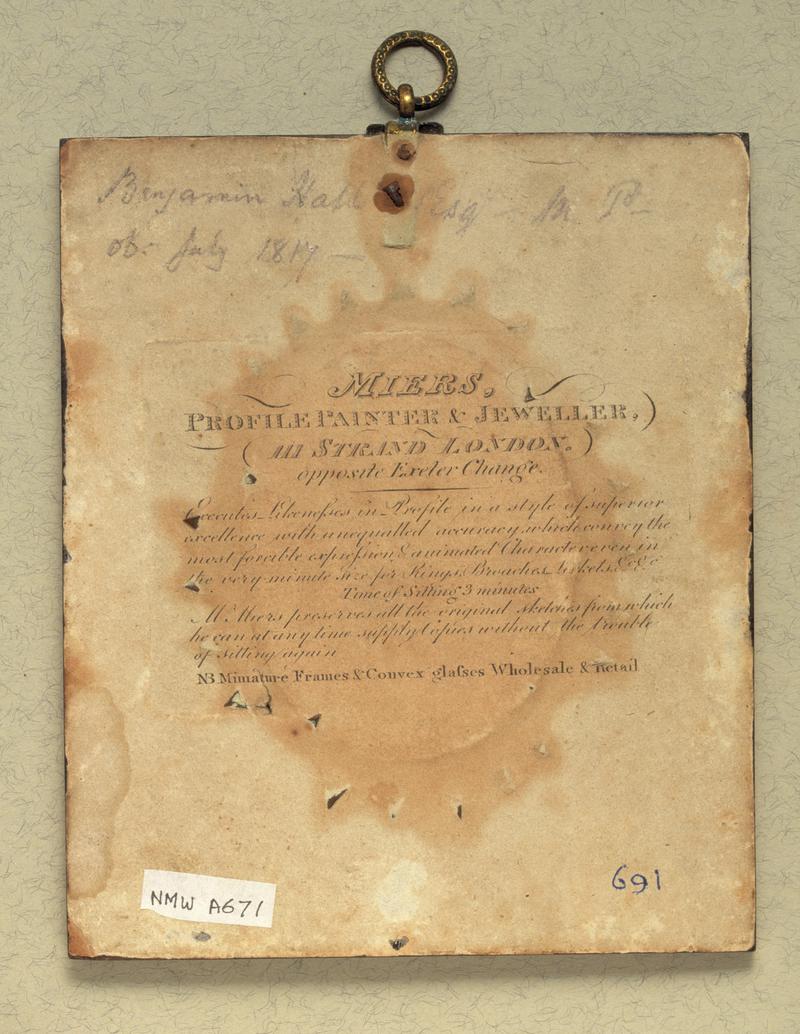 Benjamin Hall Esqr - M P.
ob: July 1817 —
MIERS,
PROFILE PAINTER & JEWELLER,
(111 STRAND LONDON.)
opposite Exeter Change.
Executes Likeneſses in Profile in a style of superior
excellence with unequalled accuracy, which convey the
most forcible expreſsion & animated Character even in
the very minute size for Rings, Broaches, Lockets, &c &c
Time of Sitting 3 minutes
Mr. Miers preserves all the original sketches from which
he can at any time supply Copies without the trouble
of sitting again
NB Miniature Frames & Convex glaſses Wholesale & Retail
691
NMW A671